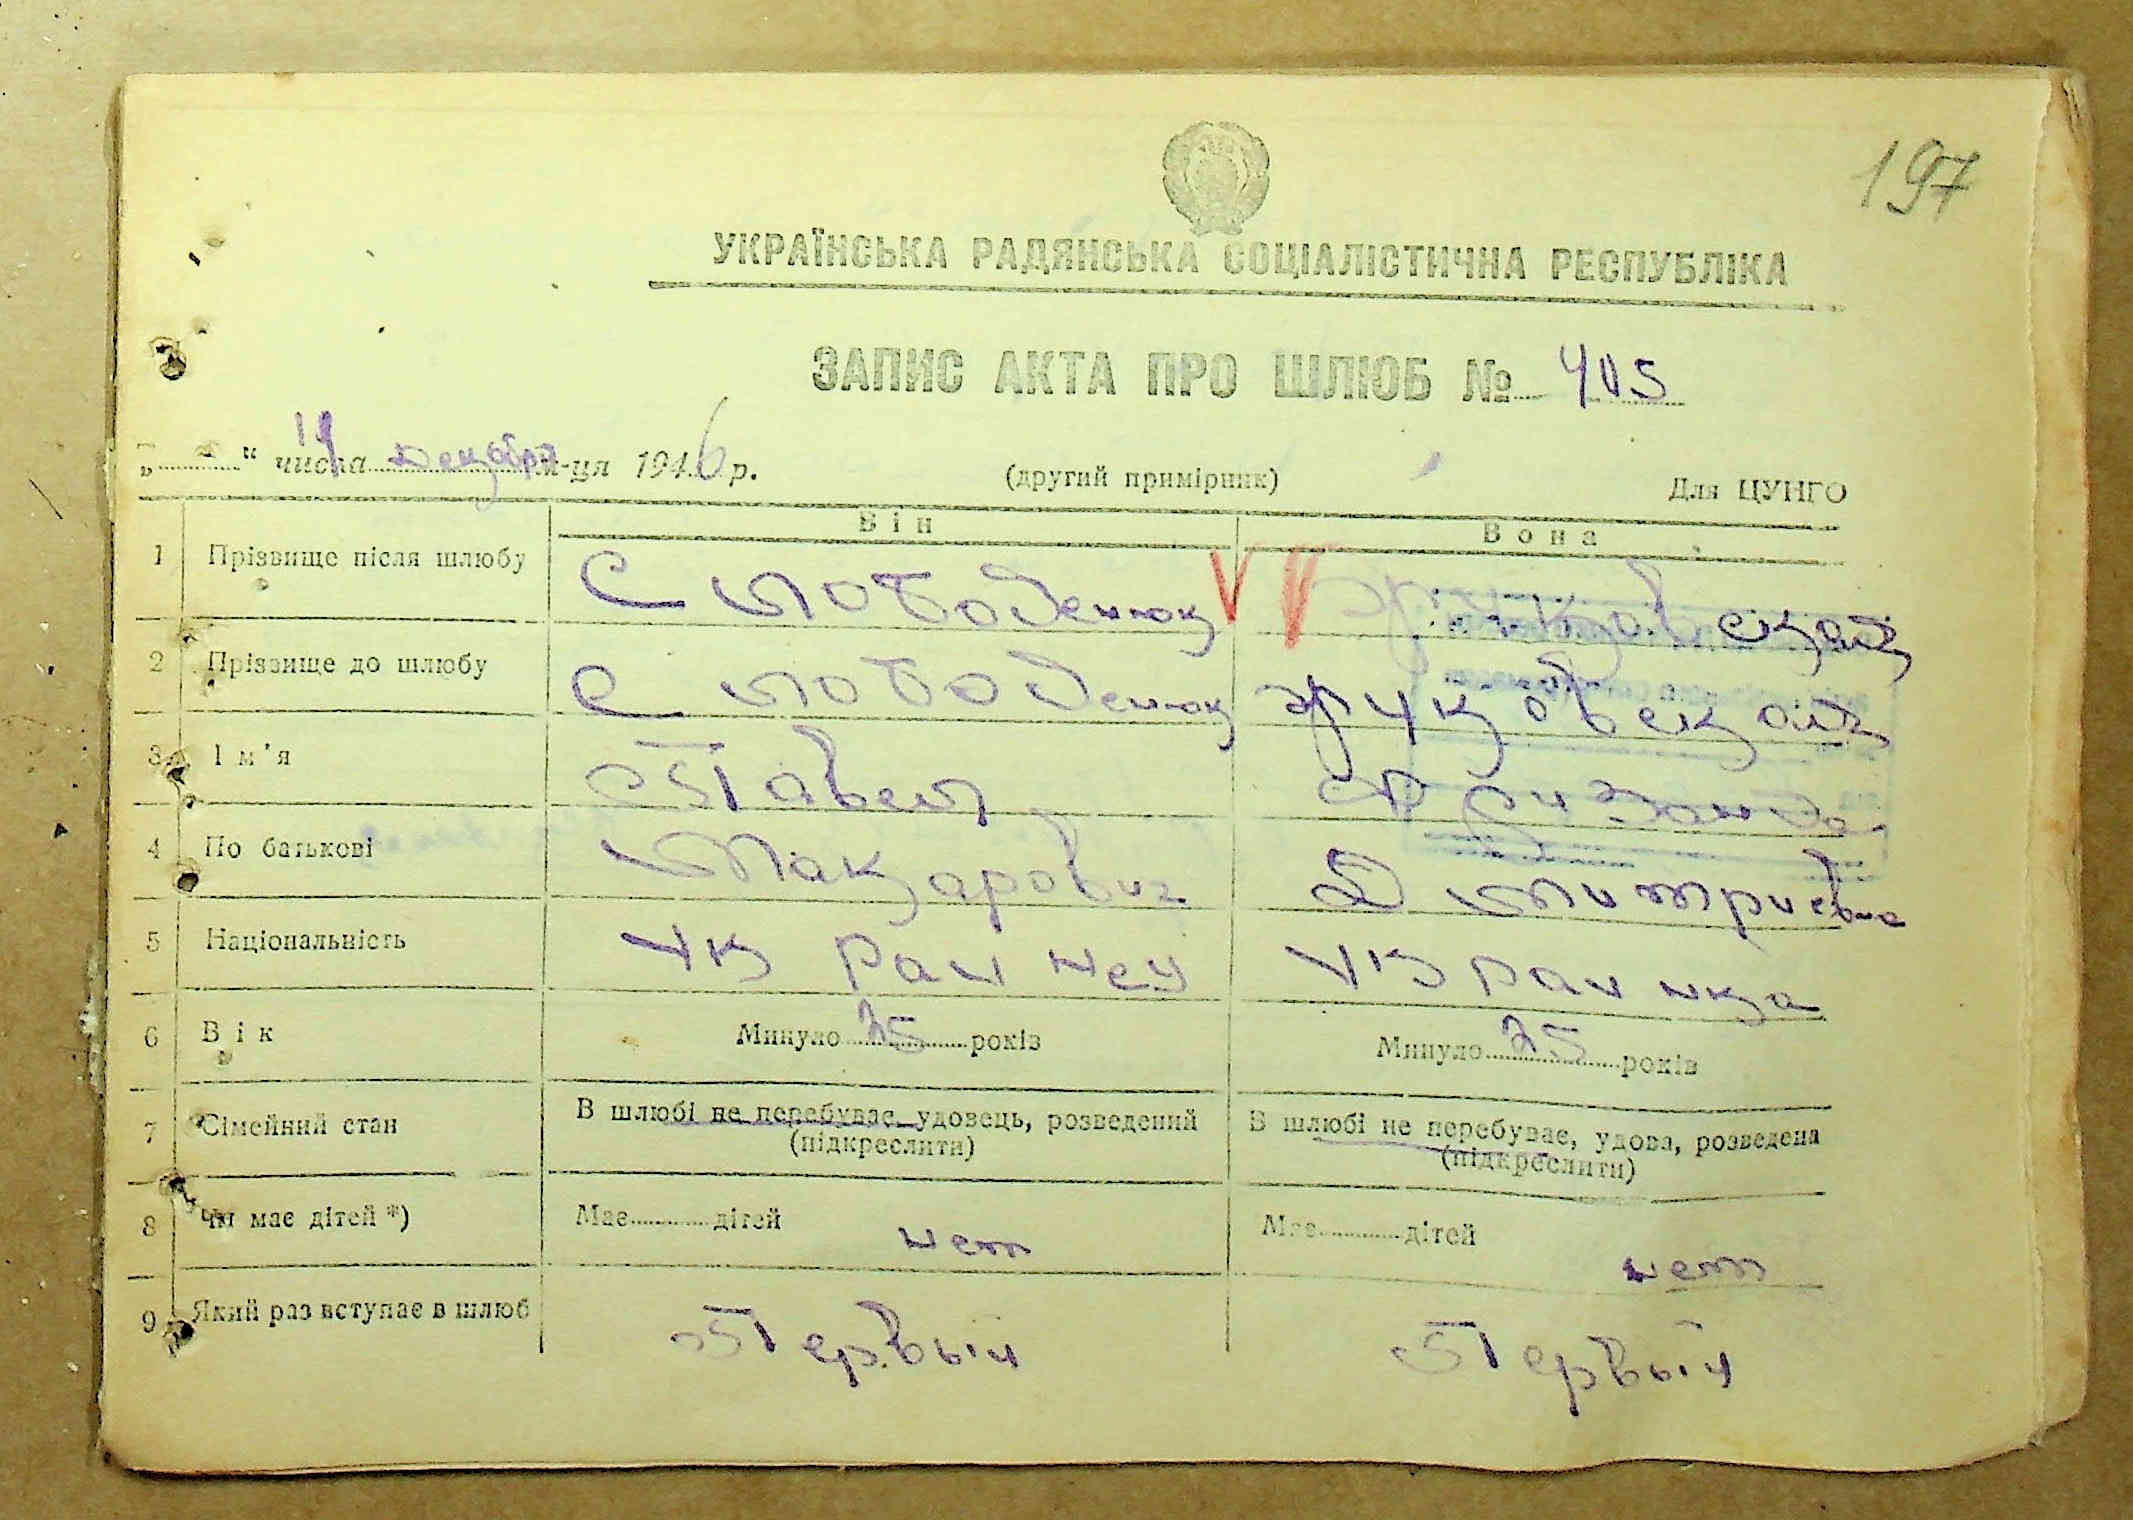 197
УКРАЇНСЬКА РАДЯНСЬКА СОЦІАЛІСТИЧНА РЕСПУБЛІКА
ЗАПИС АКТА ПРО ШЛЮБ № 405
„ “ числа 14 декабря м-ця 1946 р. (другий примірник) Для ЦУНГО
Він Вона
1 Прізвище після шлюбу Слободенюк
2 Прізвище до шлюбу Слободенюк
3 Ім'я Павел
4 По батькові Макарович Дмитриевна
5 Національність Украинец Украинка
6 Вік Минуло 25 років Минуло 25 років
7 Сімейний стан В шлюбі не перебуває, удовець, розведений В шлюбі не перебуває, удова, розведена
(підкреслити) (підкреслити)
8 Чи має дітей *) Має дітей нет Має дітей нет
9 Який раз вступає в шлюб Первый Первый